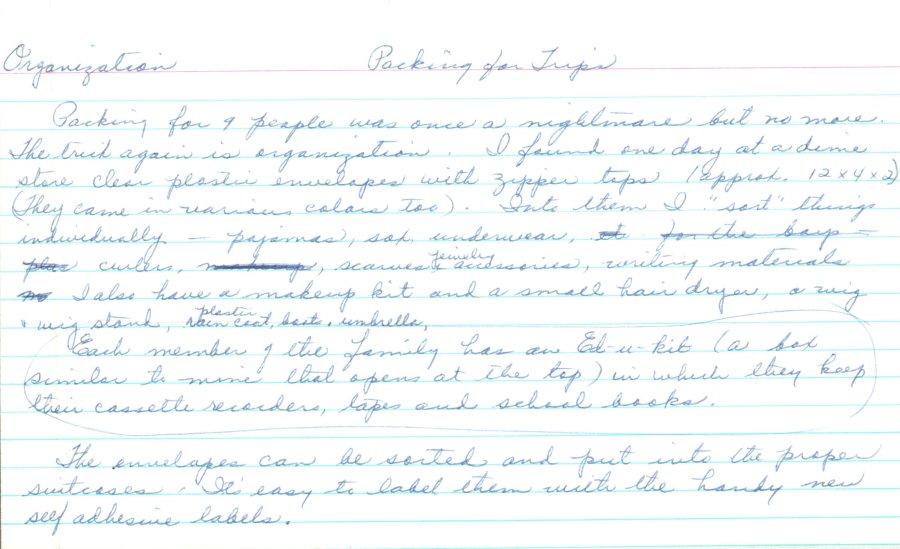 Organization Packing for Trips
Packing for 9 people was once a nightmare but no more.
The trick again is organization. I found one day at a dime
store clear plastic envelopes with zipper tops (approx. 12 x 4 x 2)
(They came in various colors too). Into them I "sort" things
individually - pajamas, sox, underwear, for the boys -
curlers, makeup, scarves & jewelry accessories, writing materials
I also have a makeup kit and a small hair dryer, a wig
& wig stand, plastic rain coat, boots, umbrella,
Each member of the family has an Ed-u-kit (a box
similar to mine that opens at the top) in which they keep
their cassette recorders, tapes and school books.
The envelopes can be sorted and put into the proper
suitcases. It's easy to label them with the handy new
self adhesive labels.